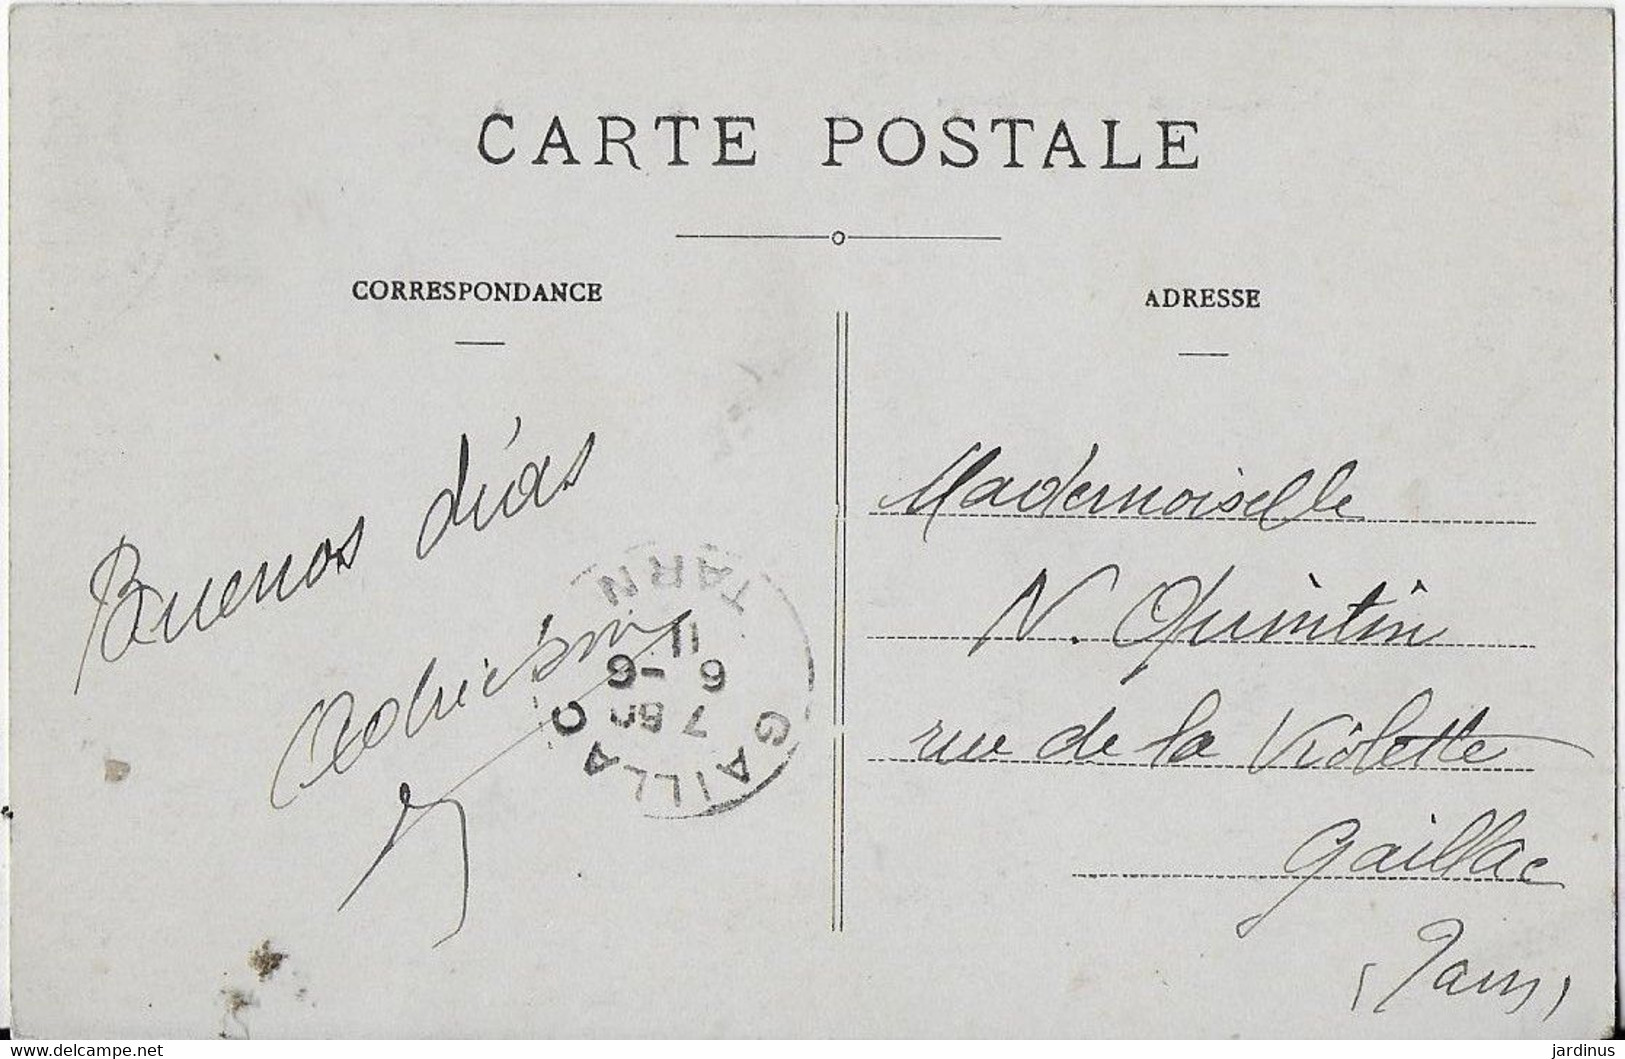 CARTE POSTALE
CORRESPONDANCE
ADRESSE
Buenos días
Mademoiselle
N. Quintin
rue de la Violette
Gaillac
(Tarn)
GAILLAC
7 50
6 -6
11
TARN
www.delcampe.net
jardinus